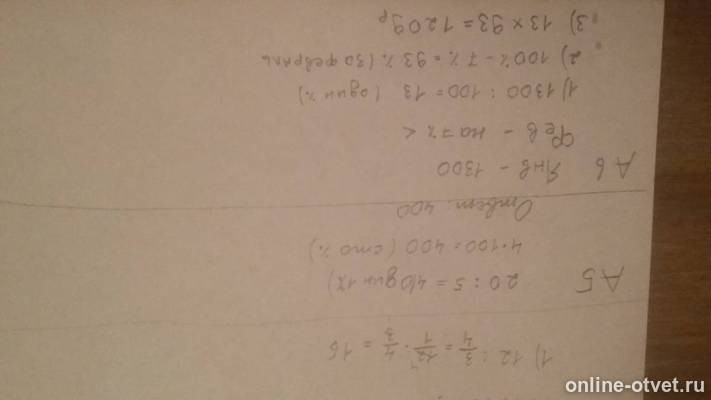 1) 12 : 3/4 = 12/1 · 4/3 = 16
А5
20 : 5 = 4 (один %)
4·100 = 400 (сто %)
Ответ: 400
А6
Янв - 1300
Фев - на 7% <
1) 1300 : 100 = 13 (один %)
2) 100% - 7% = 93% (за февраль)
3) 13 × 93 = 1209р
online-otvet.ru